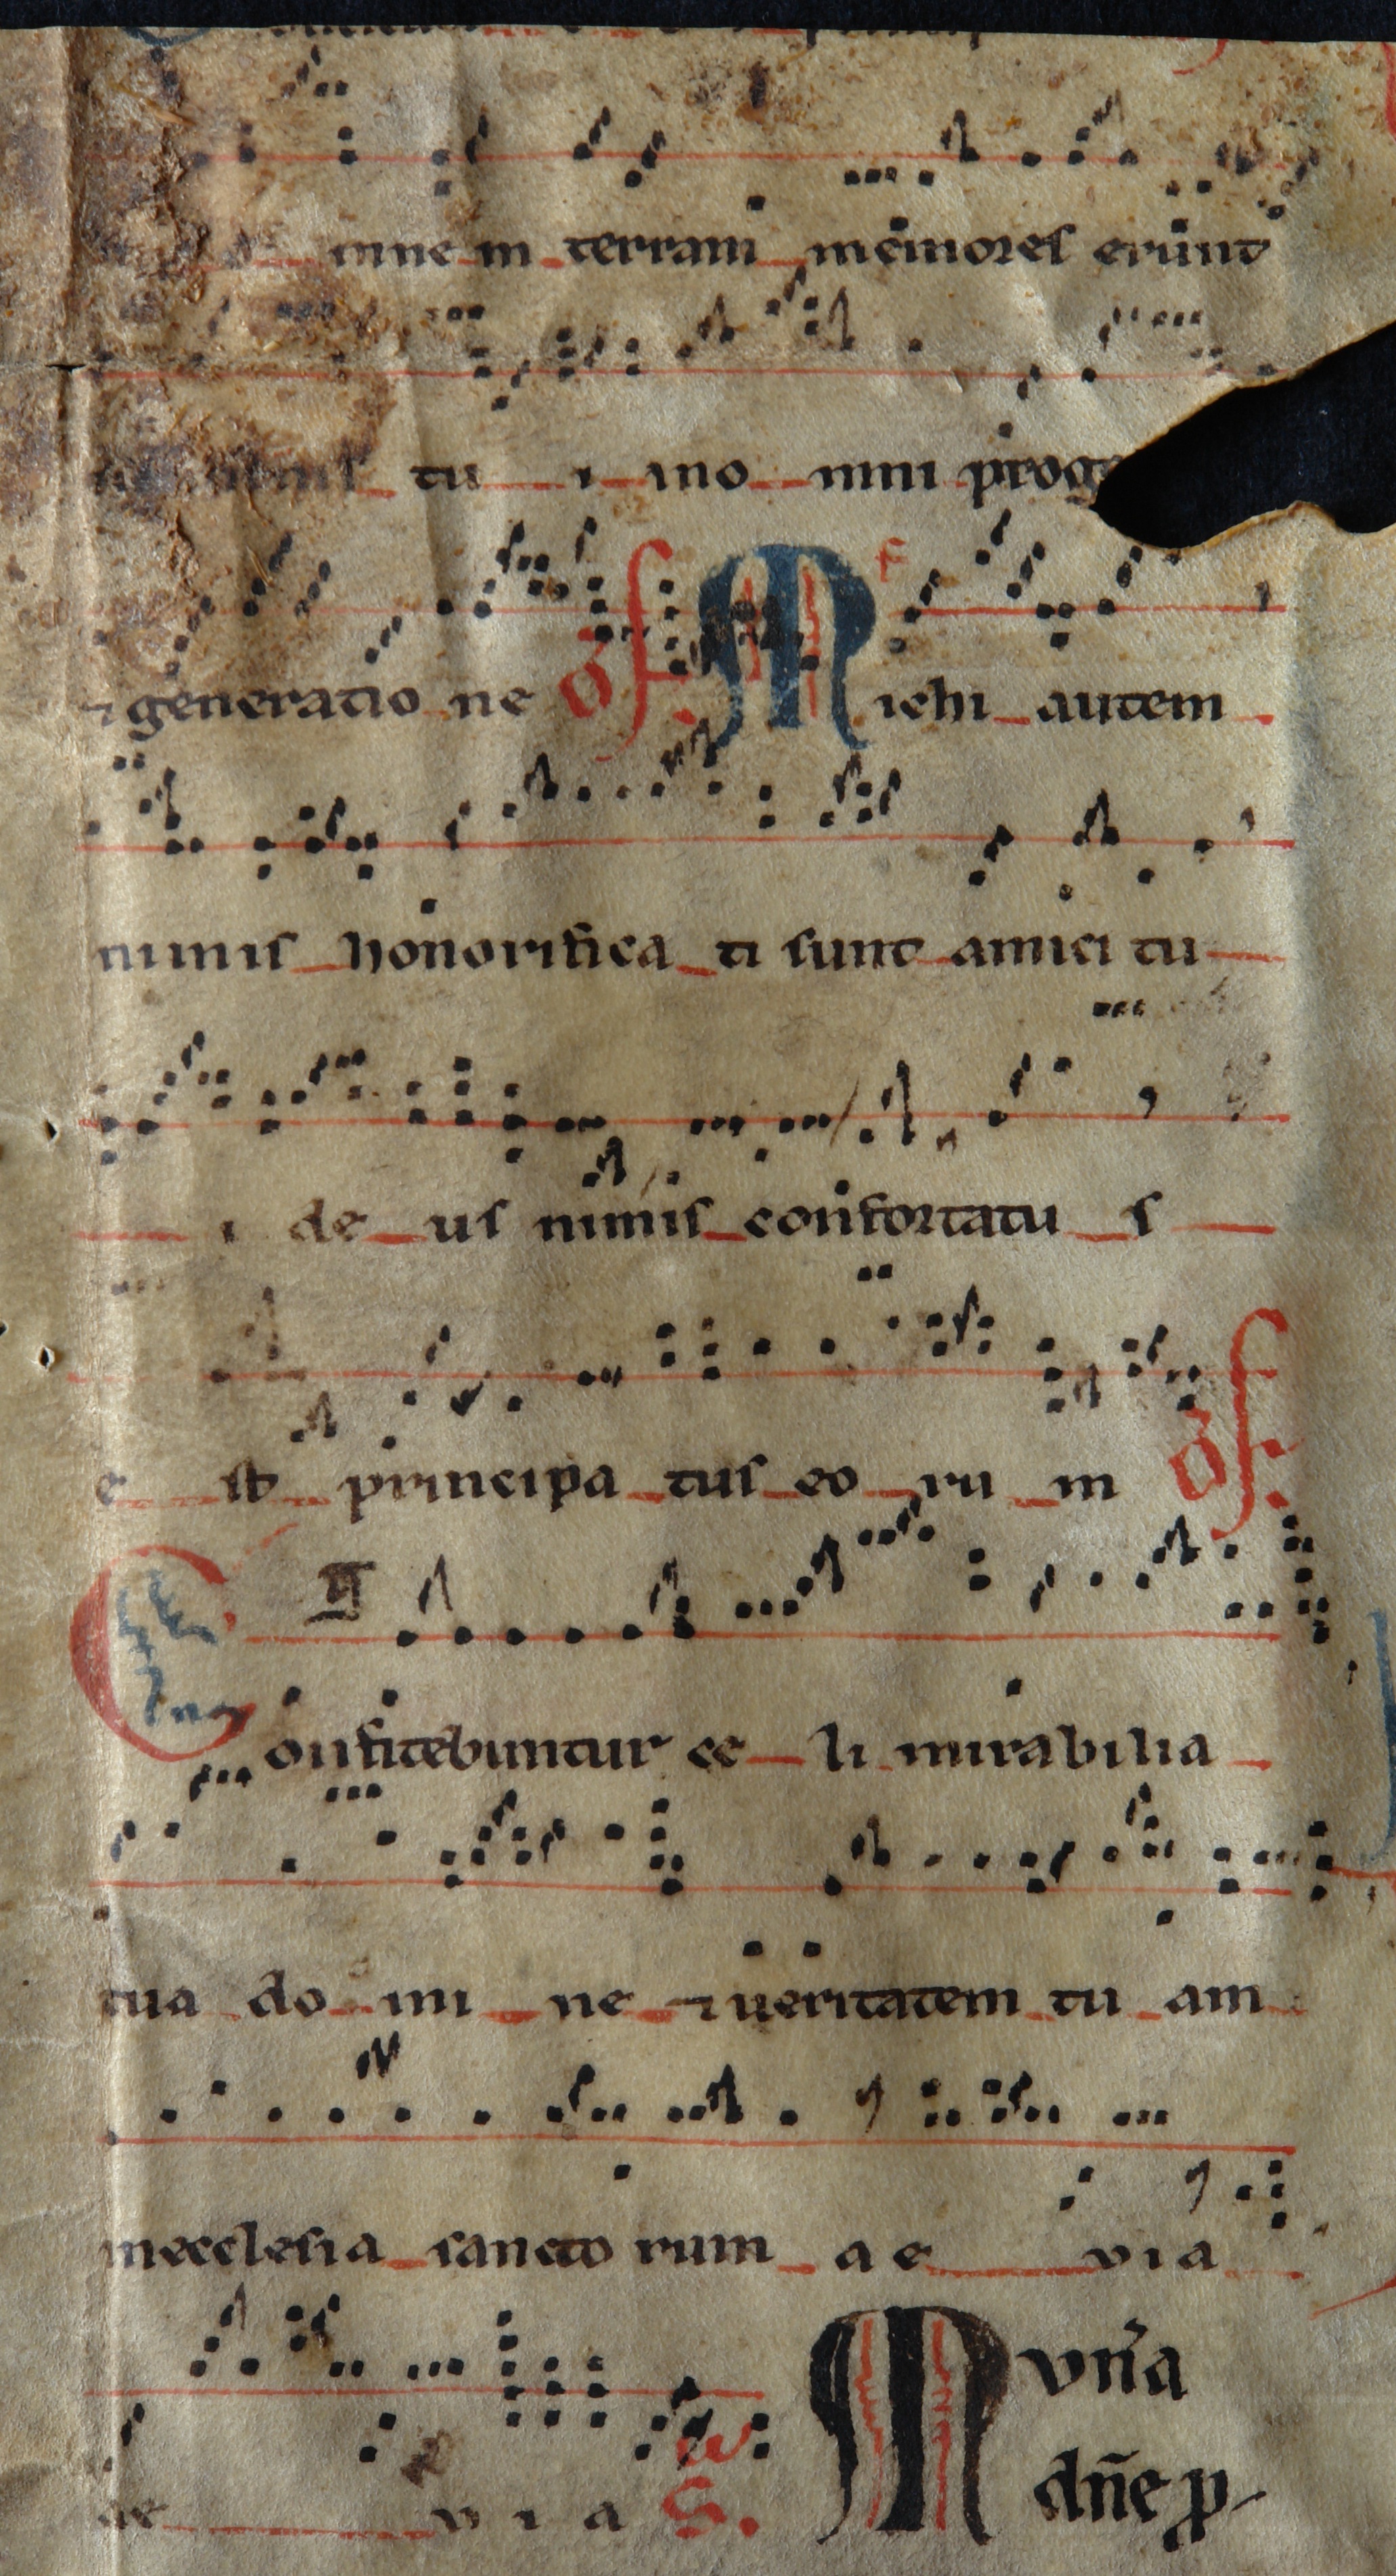 mne in terram memores erunt
tu i ino mni prog
⁊ generatio ne Of. M ichi autem
nimis honorifica ti sunt amici tu
i de us nimis confortatu s
e st principa tus eo ru m Of.
C onfitebuntur ce li mirabilia
tua do mi ne ⁊ ueritatem tu am
inecclesia sancto rum a e v i a
ae v i a S. M vn̄a
dn̄e p